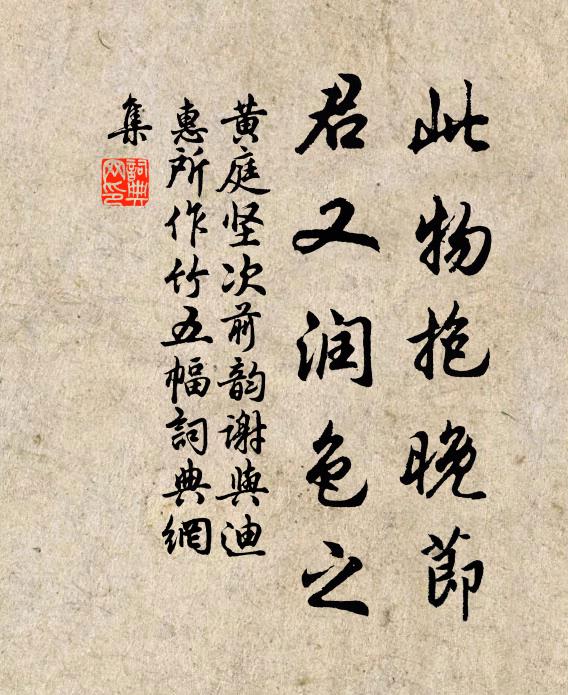 此物抱晚節
君又润色之
黄庭坚次前韵谢與迪
惠所作竹五幅詞典網
集
詞典網印